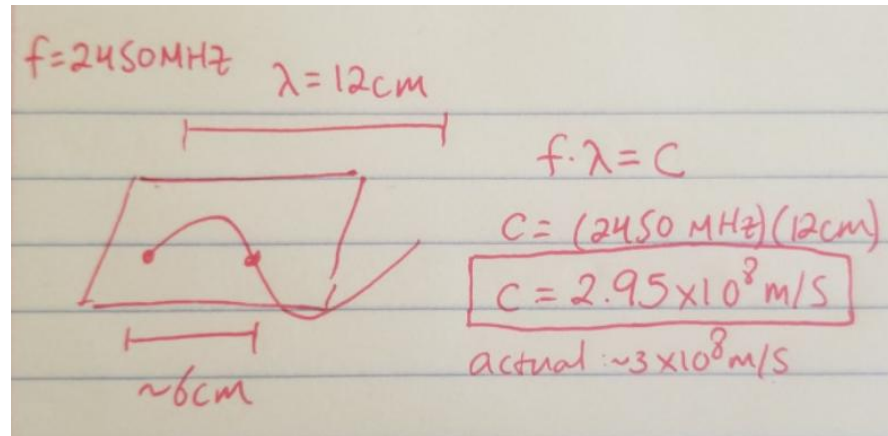 f=2450MHz
λ=12cm
~6cm
f·λ=C
C=(2450 MHz)(12cm)
C=2.95x10⁸m/s
actual:~3x10⁸m/s